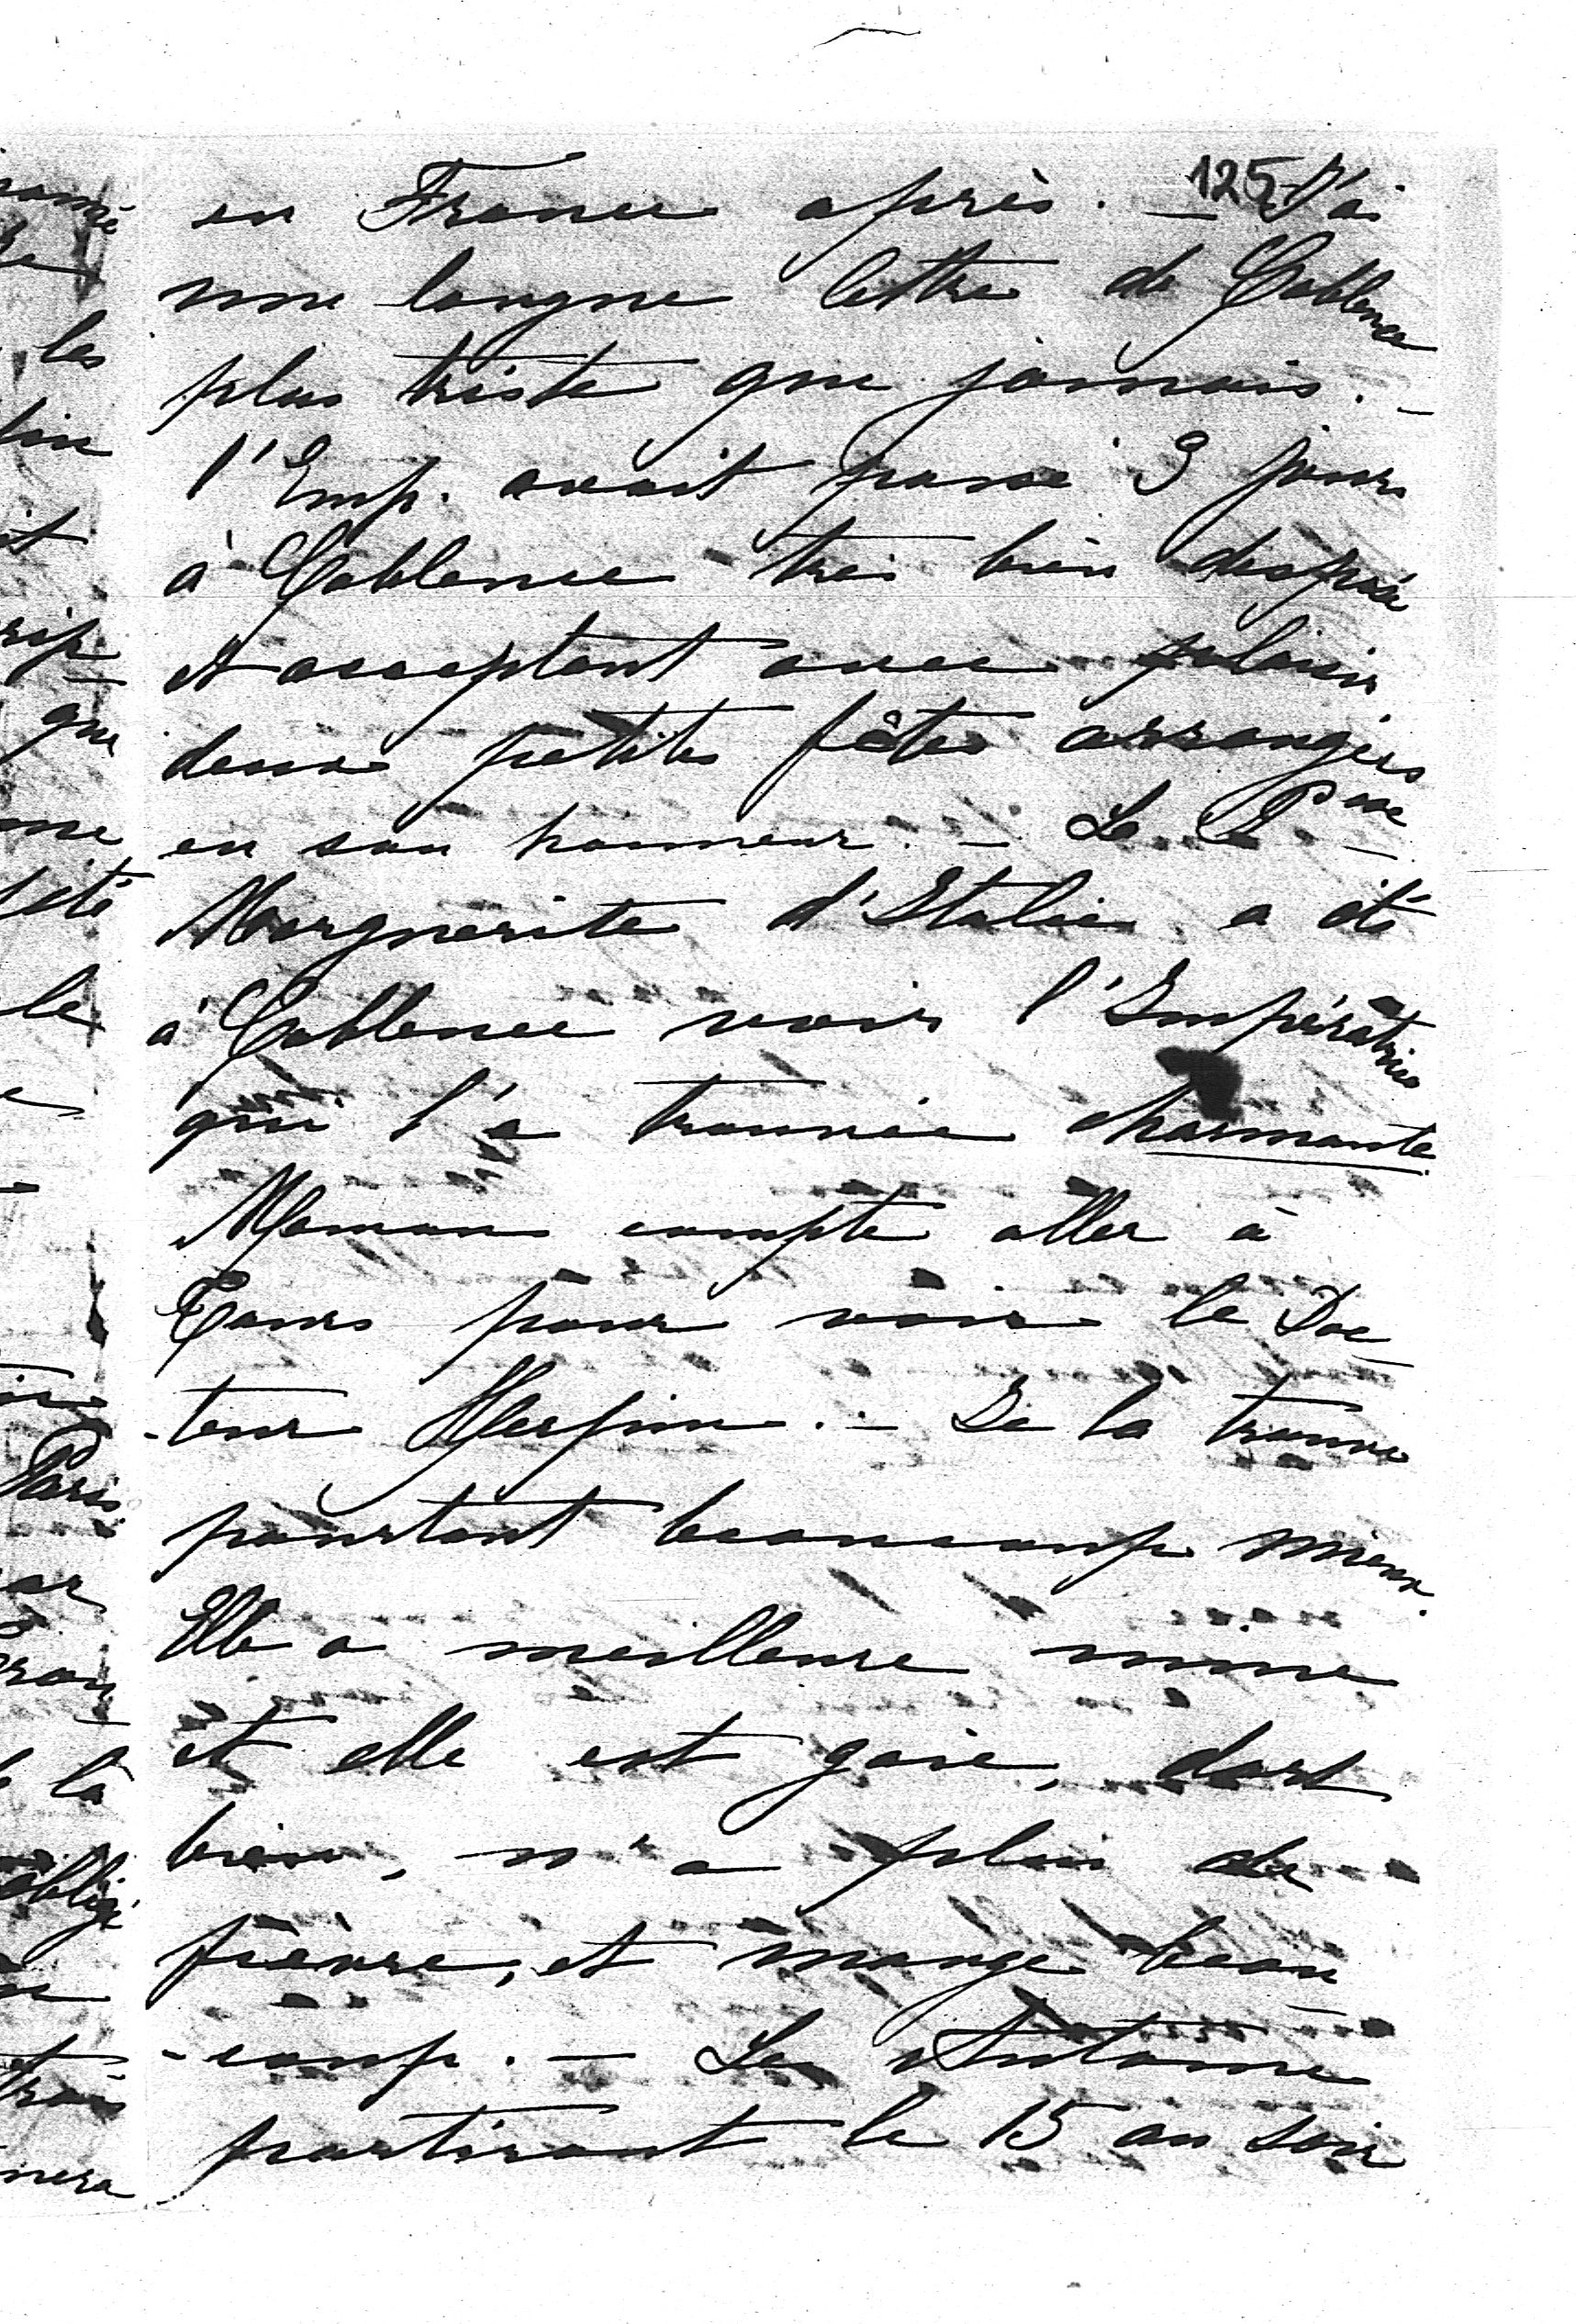 125
en France après. – J'ai
une longue lettre de Coblence
plus triste que jamais. –
l'Emp. avait passé 3 jours
à Coblence très bien disposé
et acceptant avec plaisir
deux petites fêtes arrangées
en son honneur. – La Psse –
Marguerite d'Italie a été
à Coblence voir l'Impératrice
qui l'a trouvée charmante
Maman compte aller à
Tours pour voir le Doc–
-teur Herpin. – Je la trouve
pourtant beaucoup mieux.
Elle a meilleure mine
et elle est gaie, dort
bien, n'a plus de
fièvre, et mange beau
-coup. – Les Antoine
partiront le 15 au soir
les
que
été
le
Paris
la
obligé